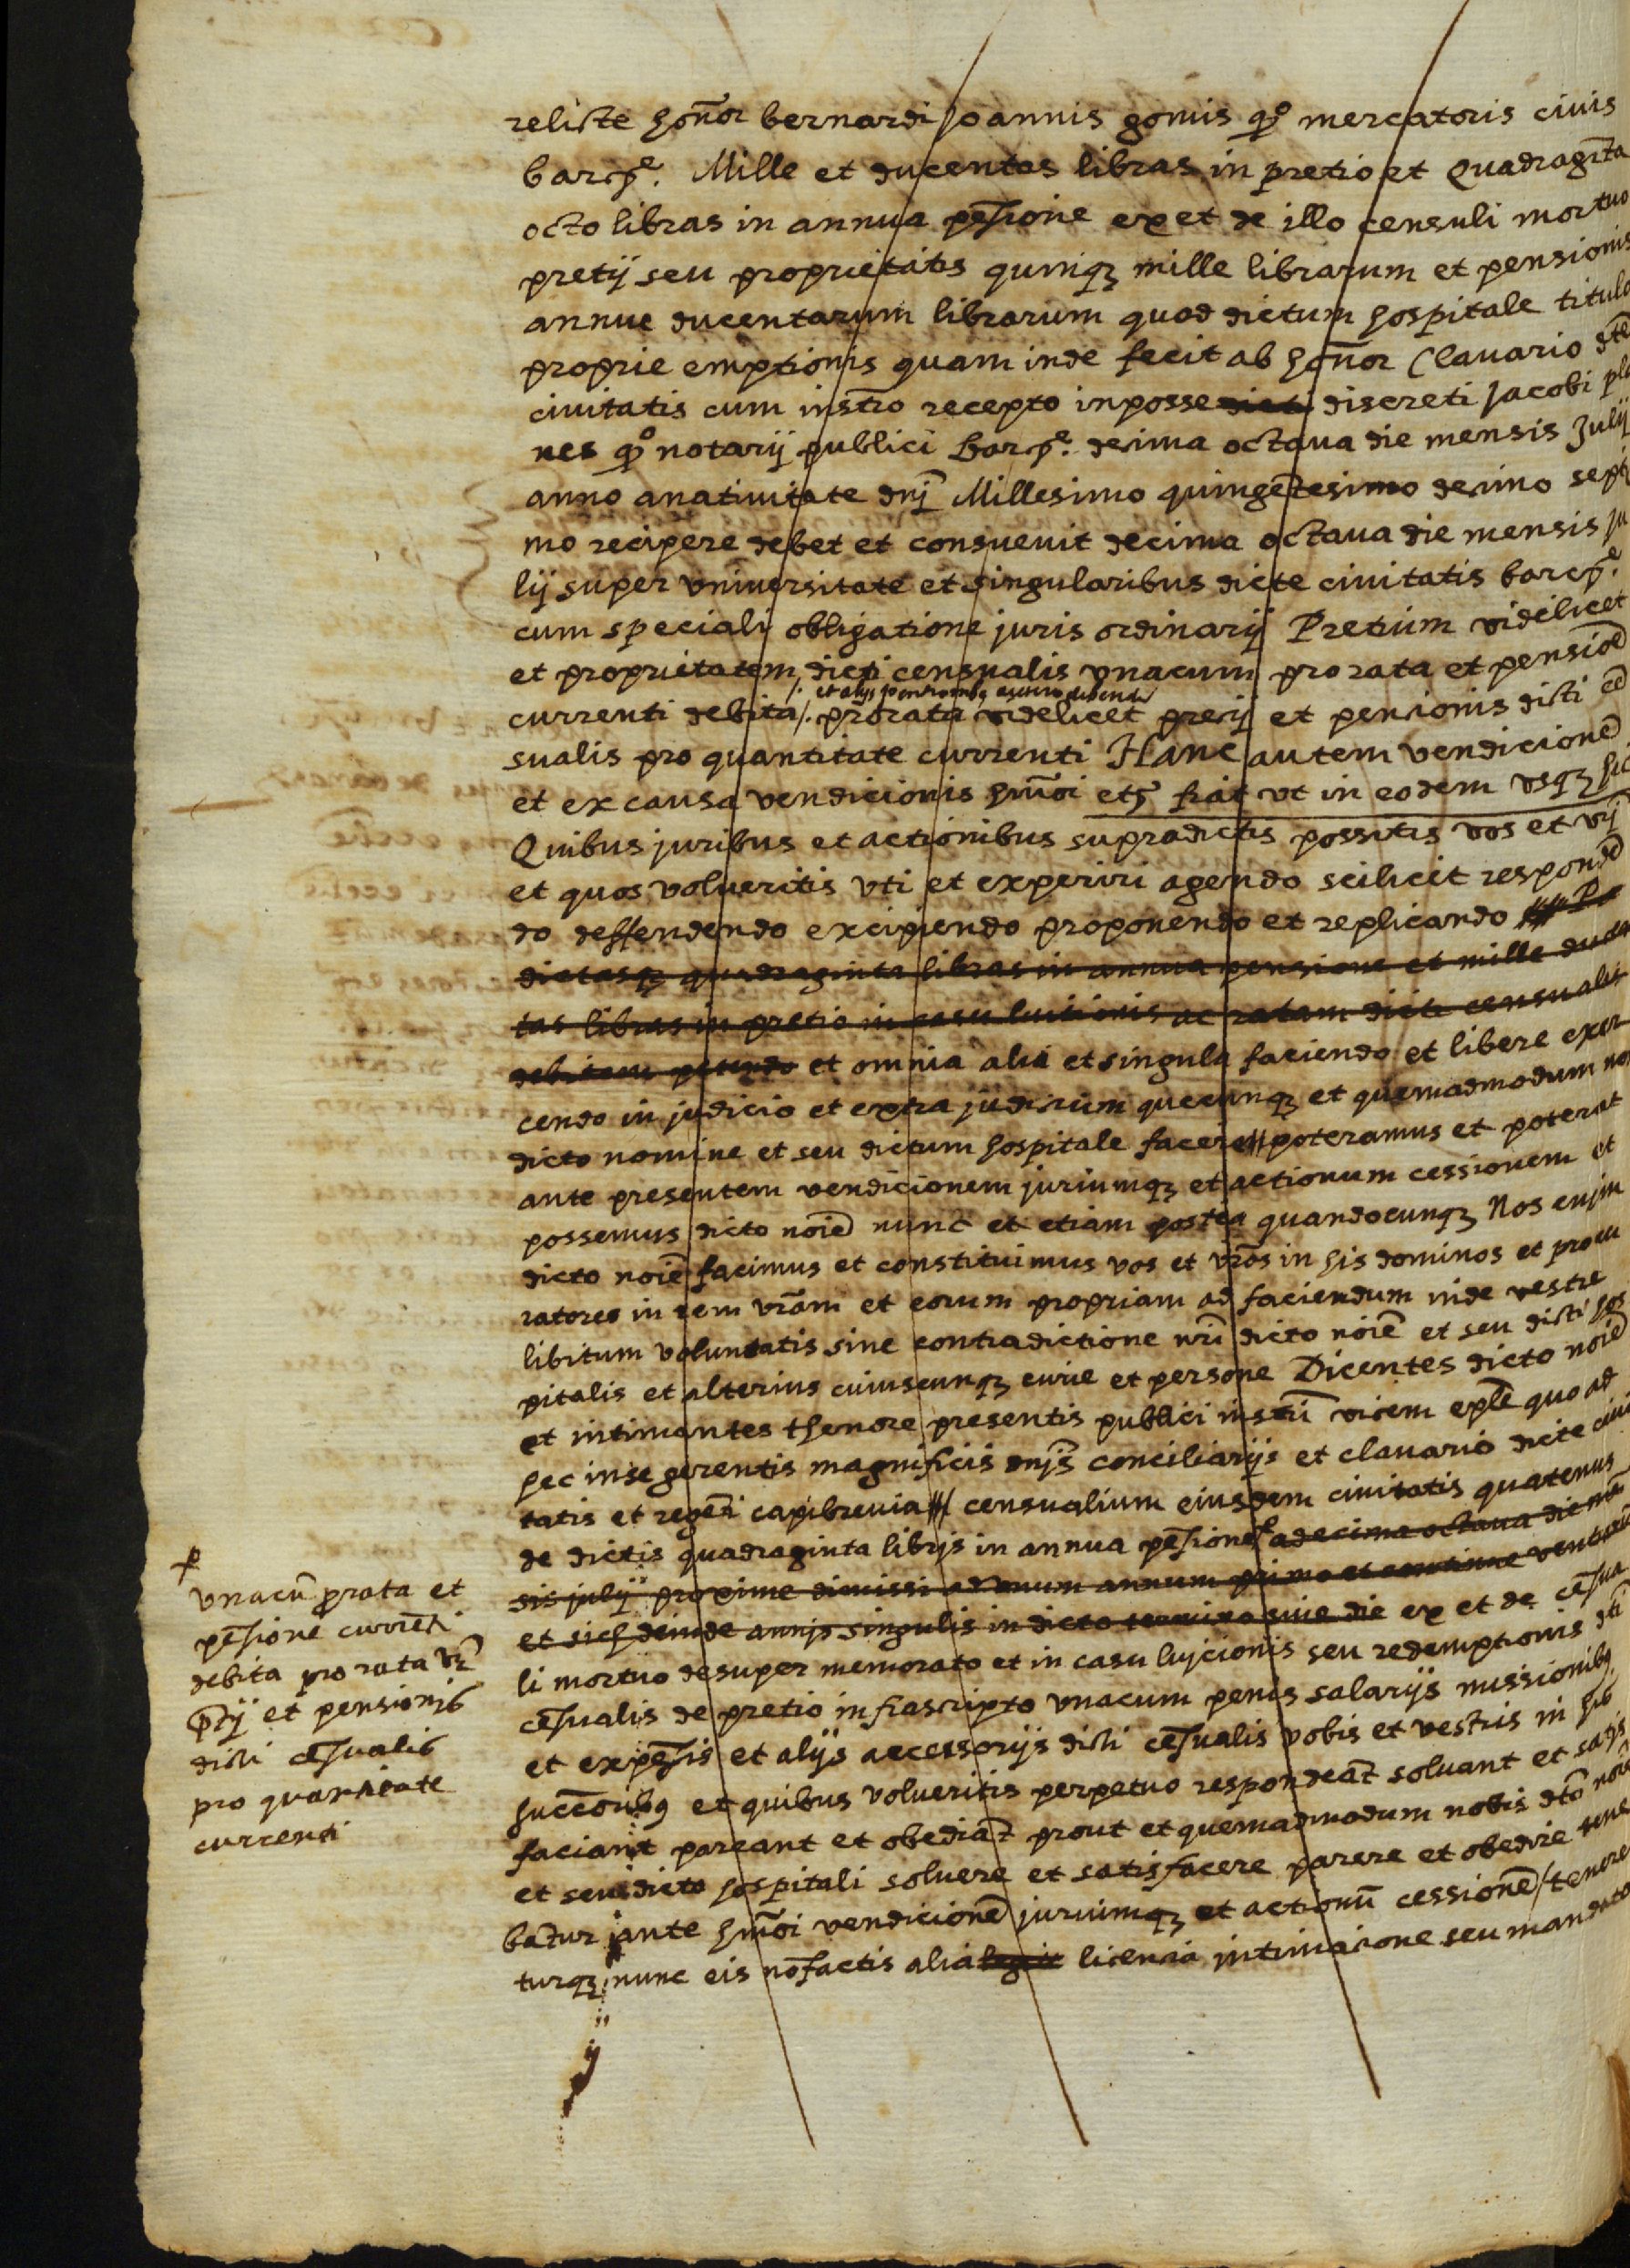 relicte honor bernardi Joannis gomis qo mercatoris ciuis
barcne. Mille et ducentas libras in pretio et Quadraginta
octo libras in annua pēsione ex et de illo censuali mortuo
pretij seu proprietatis quinqz mille librarum et pensionis
annue ducentarum librarum quod dictum hospitale titulo
proprie emptionis quam inde fecit ab honor Clauario dte
ciuitatis cum instro recepto in posse dicti discreti Jacobi pla
nes qo notarij publici barcne. decima octaua die mensis Julij
anno a natiuitate dnj Millesimo quingētesimo decimo septi
mo recipere debet et consueuit decima octaua die mensis ju
lij super vniuersitate et singularibus dicte ciuitatis barcne.
cum speciali obligatione juris ordinarij Pretium videlicet
et proprietatem dicti censualis vnacum pro rata et pensiōe
et alijs
currenti debita /. prorata videlicet precij et pencionis dicti cē
sualis pro quantitate currenti Hanc autem vendicionē
et ex causa vendicionis hmōi etc fiat vt in eodem vsqz hic
Quibus juribus et actionibus supradictis possitis vos et vrj
et quos volueritis vti et experiri agendo scilicet respondē
do deffendendo excipiendo proponendo et replicando
dictasqz quadraginta libras in annua pensione et mille ducen
tas libras in pretio in casu luitionis ac ratam dicti censualis
debitam petendo et omnia alia et singula faciendo et libere exer
cendo in judicio et extra judicium quecunqz et quemadmodum nos
dicto nomine et seu dictum hospitale facere poteramus et poterat
ante presentem vendicionem juriumqz et actionum cessionem et
possemus dicto noīe nunc et etiam postea quandocunqz Nos enjm
dicto noīe facimus et constituimus vos et vros in his dominos et procu
ratores in rem vrām et eorum propriam ad faciendum inde vestre
libitum voluntatis sine contradictione nrī dicto noīe et seu dicti hos
pitalis et alterius cuiuscunqz curie et persone Dicentes dicto noīe
et intimantes thenore presentis publici instri vicem eple quo ad
hec in se gerentis magnificis dnjs conciliarijs et clauario dicte ciui
tatis et regēti capibreuia censualium eiusdem ciuitatis quatenus
de dictis quadraginta libris in annua pēsione a decima octaua die mē
sis julij proxime dimissi ad vnum annum primo et continue venturū
et sic deinde annis singulis in dicto termino siue die ex et de cēsua
li mortuo desuper memorato et in casu lujcionis seu redemptionis dti
cēsualis de pretio infrascripto vnacum penis salarijs missionibz
et expēsis et alijs accessorijs dicti cēsualis vobis et vestris in his
successoribz et quibus volueritis perpetuo respondeāt soluant et satis
faciant pareant et obediāt prout et quemadmodum nobis dto noīe
et seu dicto hospitali soluere et satisfacere parere et obedire tene
bātur ante hmōi vendicionē juriumqz et actionū cessionē / tenere
turqz nunc eis nō factis alia licencia intimacione seu mandato
vnacū prorata et
pēsione currēti
debita pro rata vz
precij et pensionis
dicti cēsualis
pro quantitate
currenti